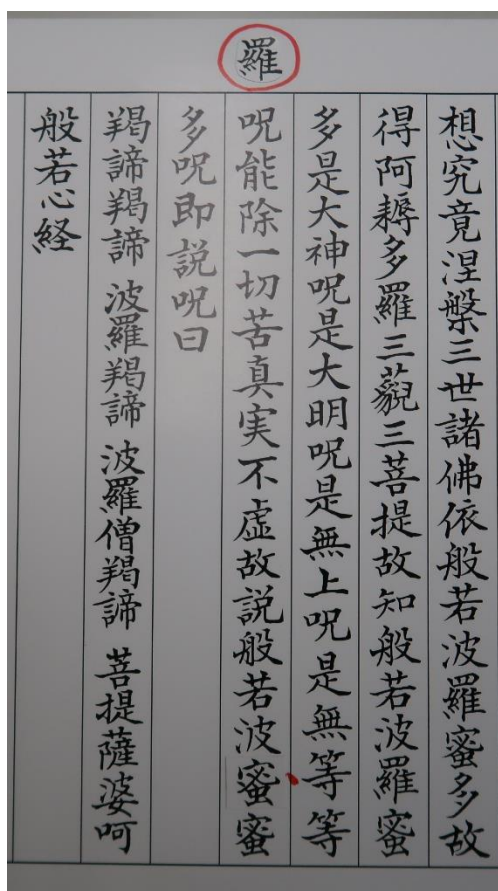 羅
想究竟涅槃三世諸佛依般若波羅蜜多故
得阿耨多羅三藐三菩提故知般若波羅蜜
多是大神呪是大明呪是無上呪是無等等
呪能除一切苦真実不虚故説般若波蜜蜜
多呪即説呪曰
羯諦羯諦 波羅羯諦 波羅僧羯諦 菩提薩婆呵
般若心経